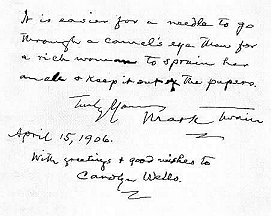 It is easier for a needle to go
through a camel's eye than for
a rich woman to sprain her
ankle & keep it out of the papers.
Truly Yours
Mark Twain
April 15, 1906.
With greetings & good wishes to
Carolyn Wells.